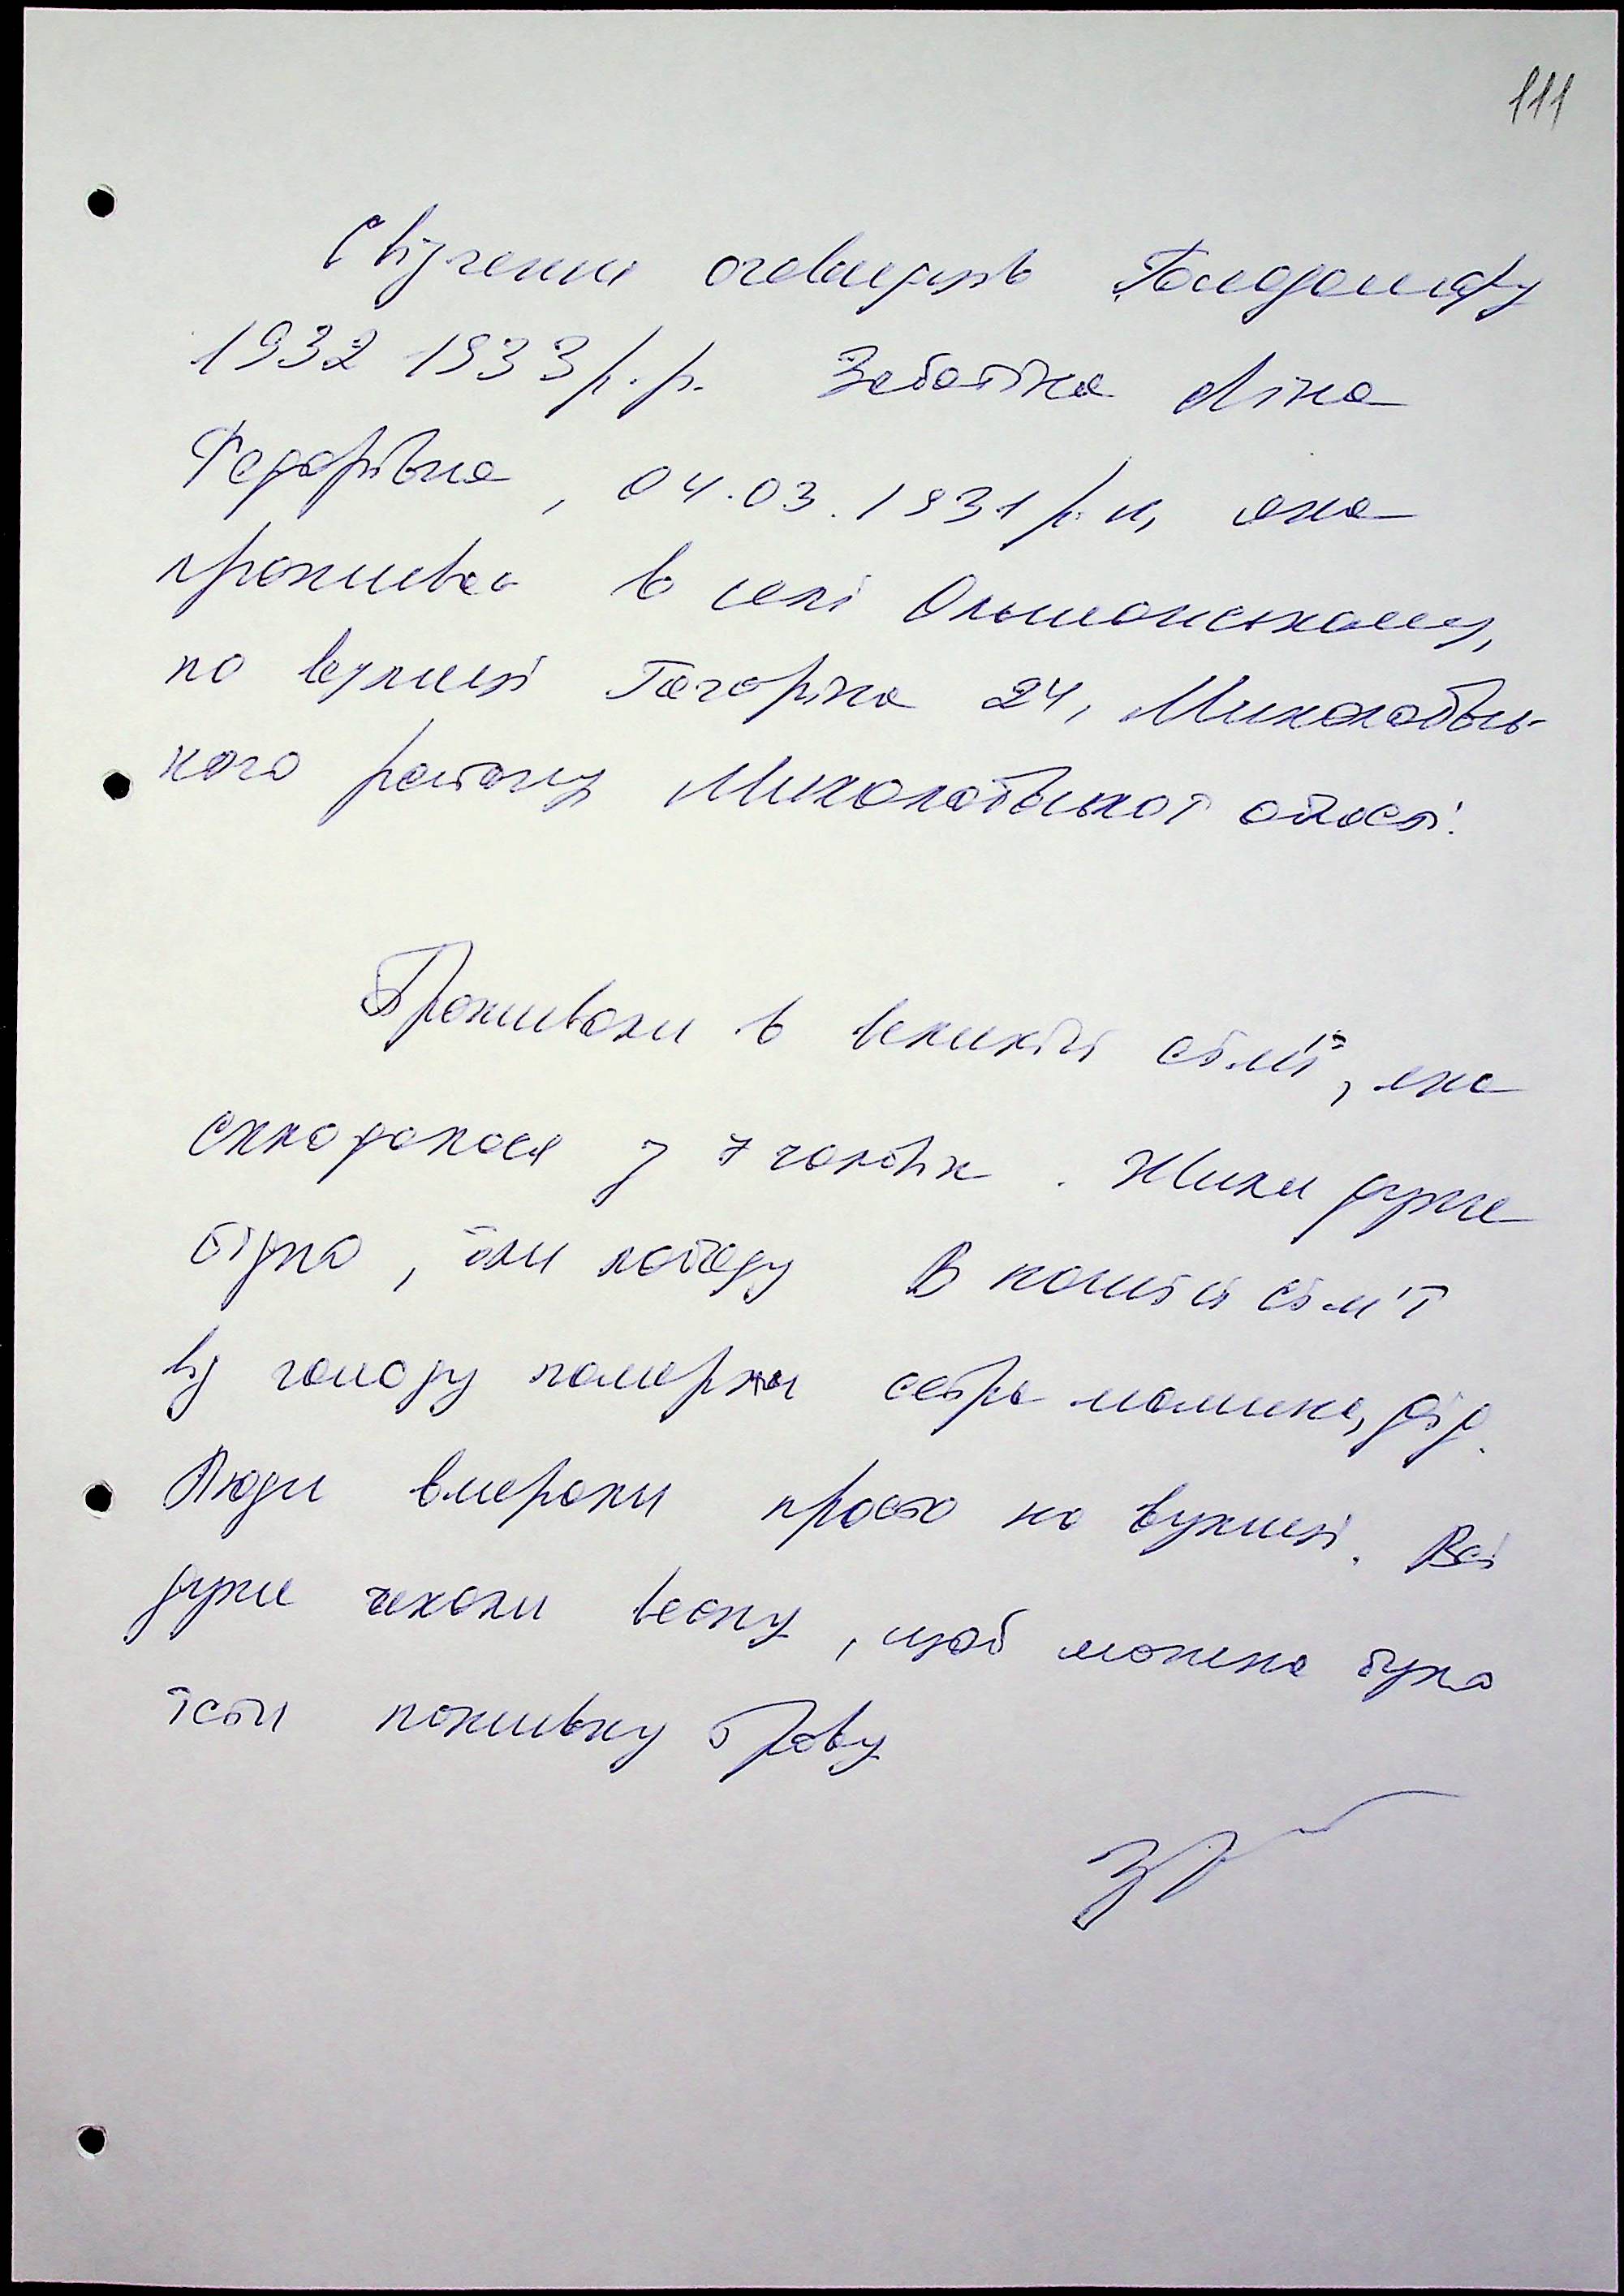 111
Свідчення очевидців Голодомору
1932 1933 р.р. Ліна
Федорівна, 04.03.1931 р.н, яка
проживає в селі Ольшанському,
по вулиці Гагаріна 24, Миколаївсь-
кого району Миколаївської област.
Проживали в великій сім'ї, яка
складалася з 7 чоловік. Жили дуже
бідно, їли лободу В нашій сім'ї
від голоду померли сестра мамина, дід.
Люди вмерали просто на вулиці. Всі
дуже чекали весну, щоб можна було
їсти поживну траву